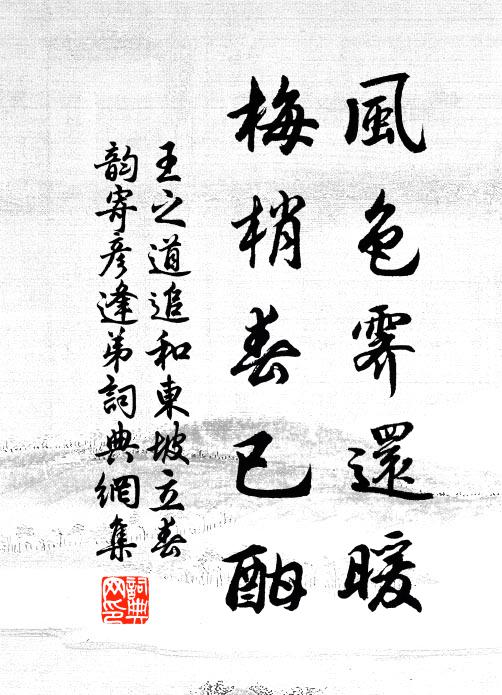 風色霽還暖
梅梢春已酣
王之道追和東坡立春
韵寄彥逢弟詞典網集
詞典
网印